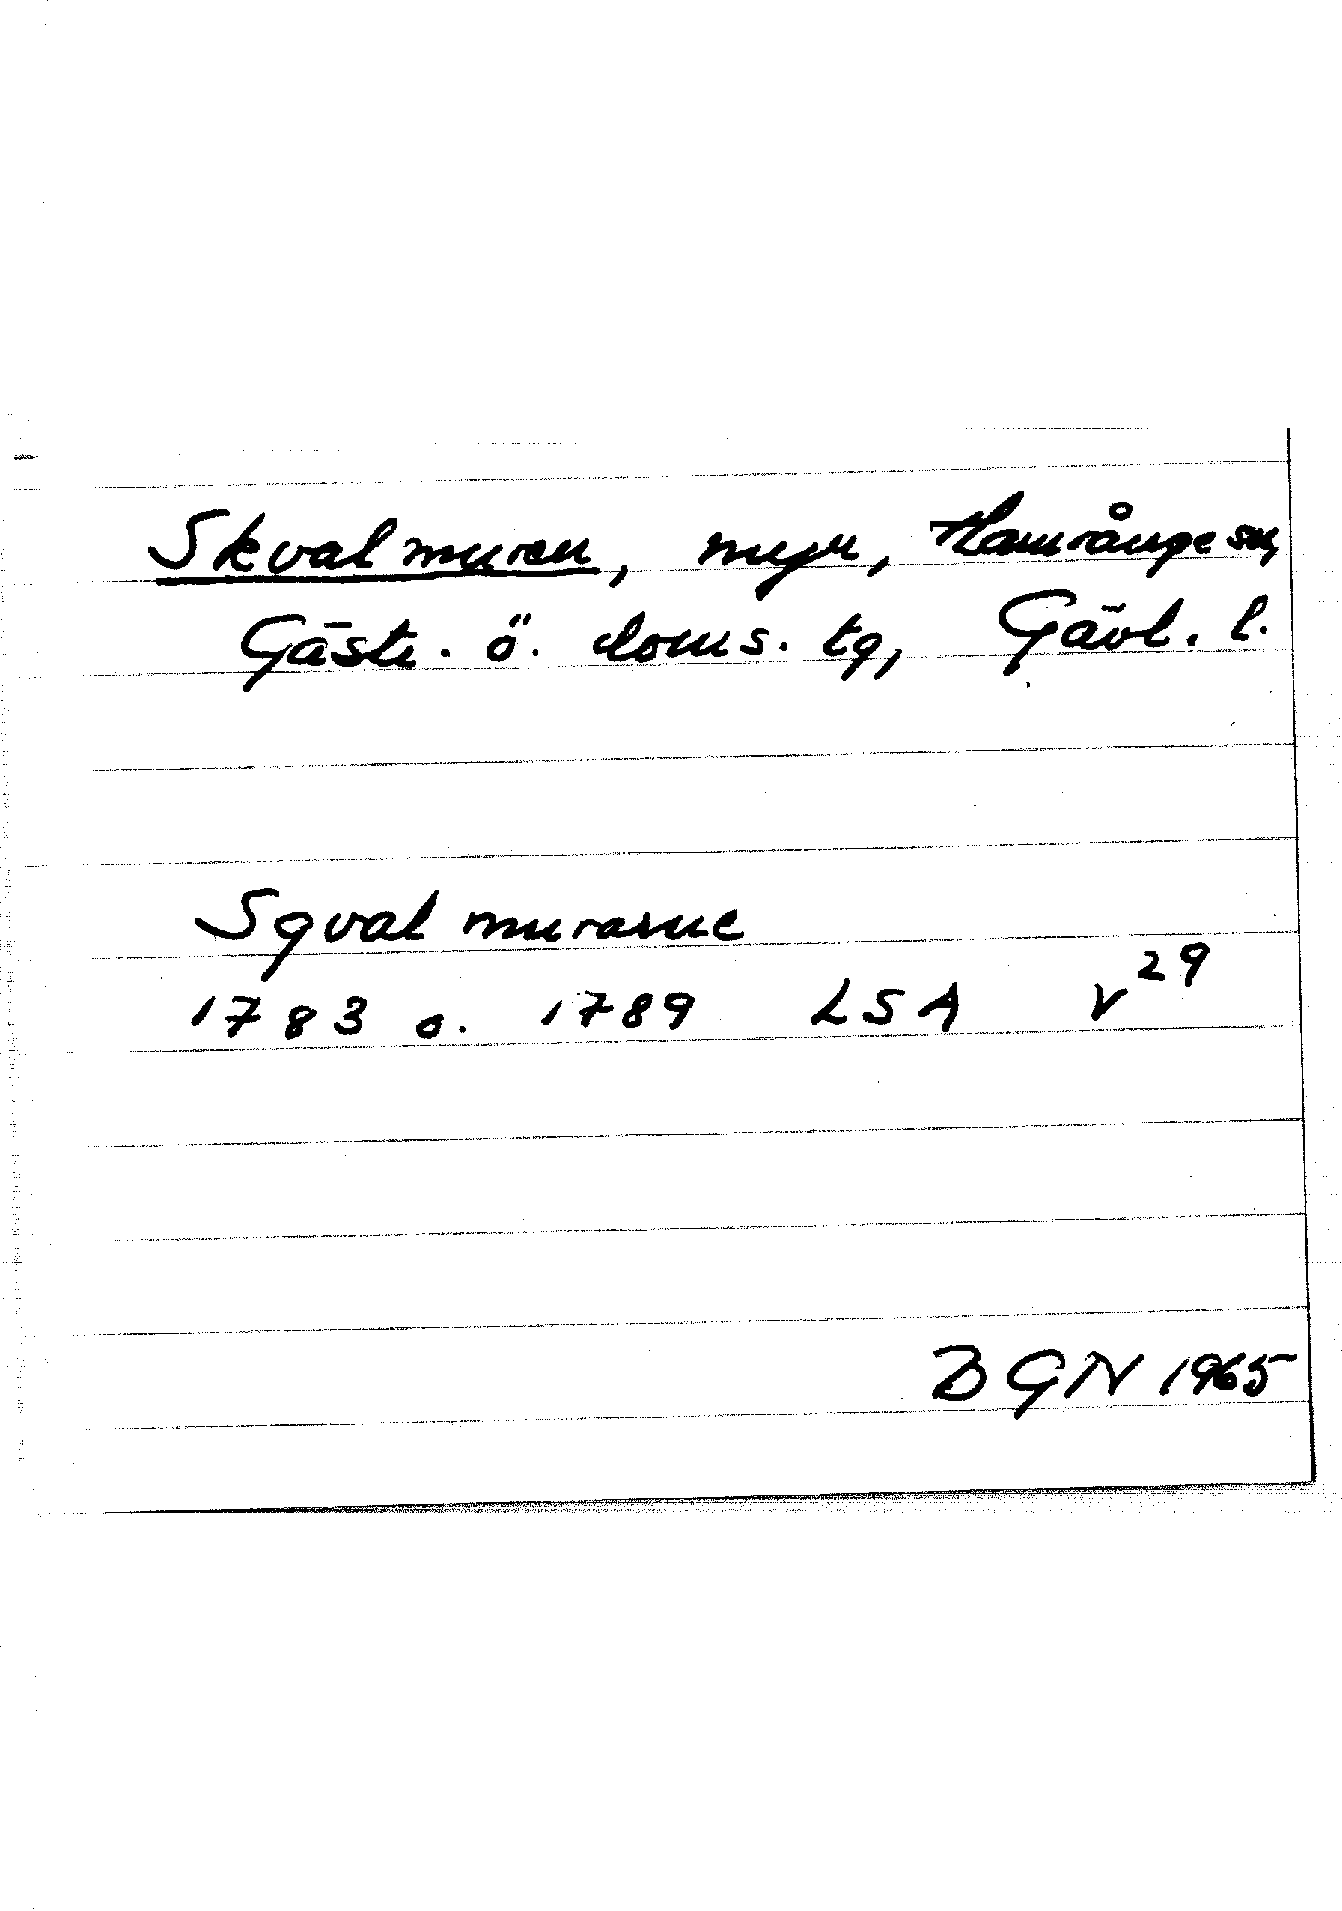 Skvalmuren, myr, Hamrånge sn,
Gästr. ö. doms. tg, Gävl. l.
Sqval murarne
1783 o. 1789 LSA V 29
BGN 1965